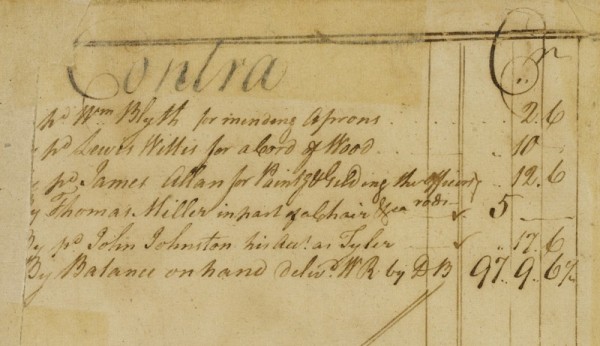 Contra Cr
pd Wm Blyth for mending Aprons .. 2.6
pd Lewis Willis for a Cord of Wood .. 10 —
pd James Allan for Paintg & Gilding the Officers .. 12.6
rods
By Thomas Miller in part of a Chair &ca 5 —
By pd John Johnston his acct as Tyler .. 17.6
By Balance on hand delivd WR by DB 97.. 9.. 6½